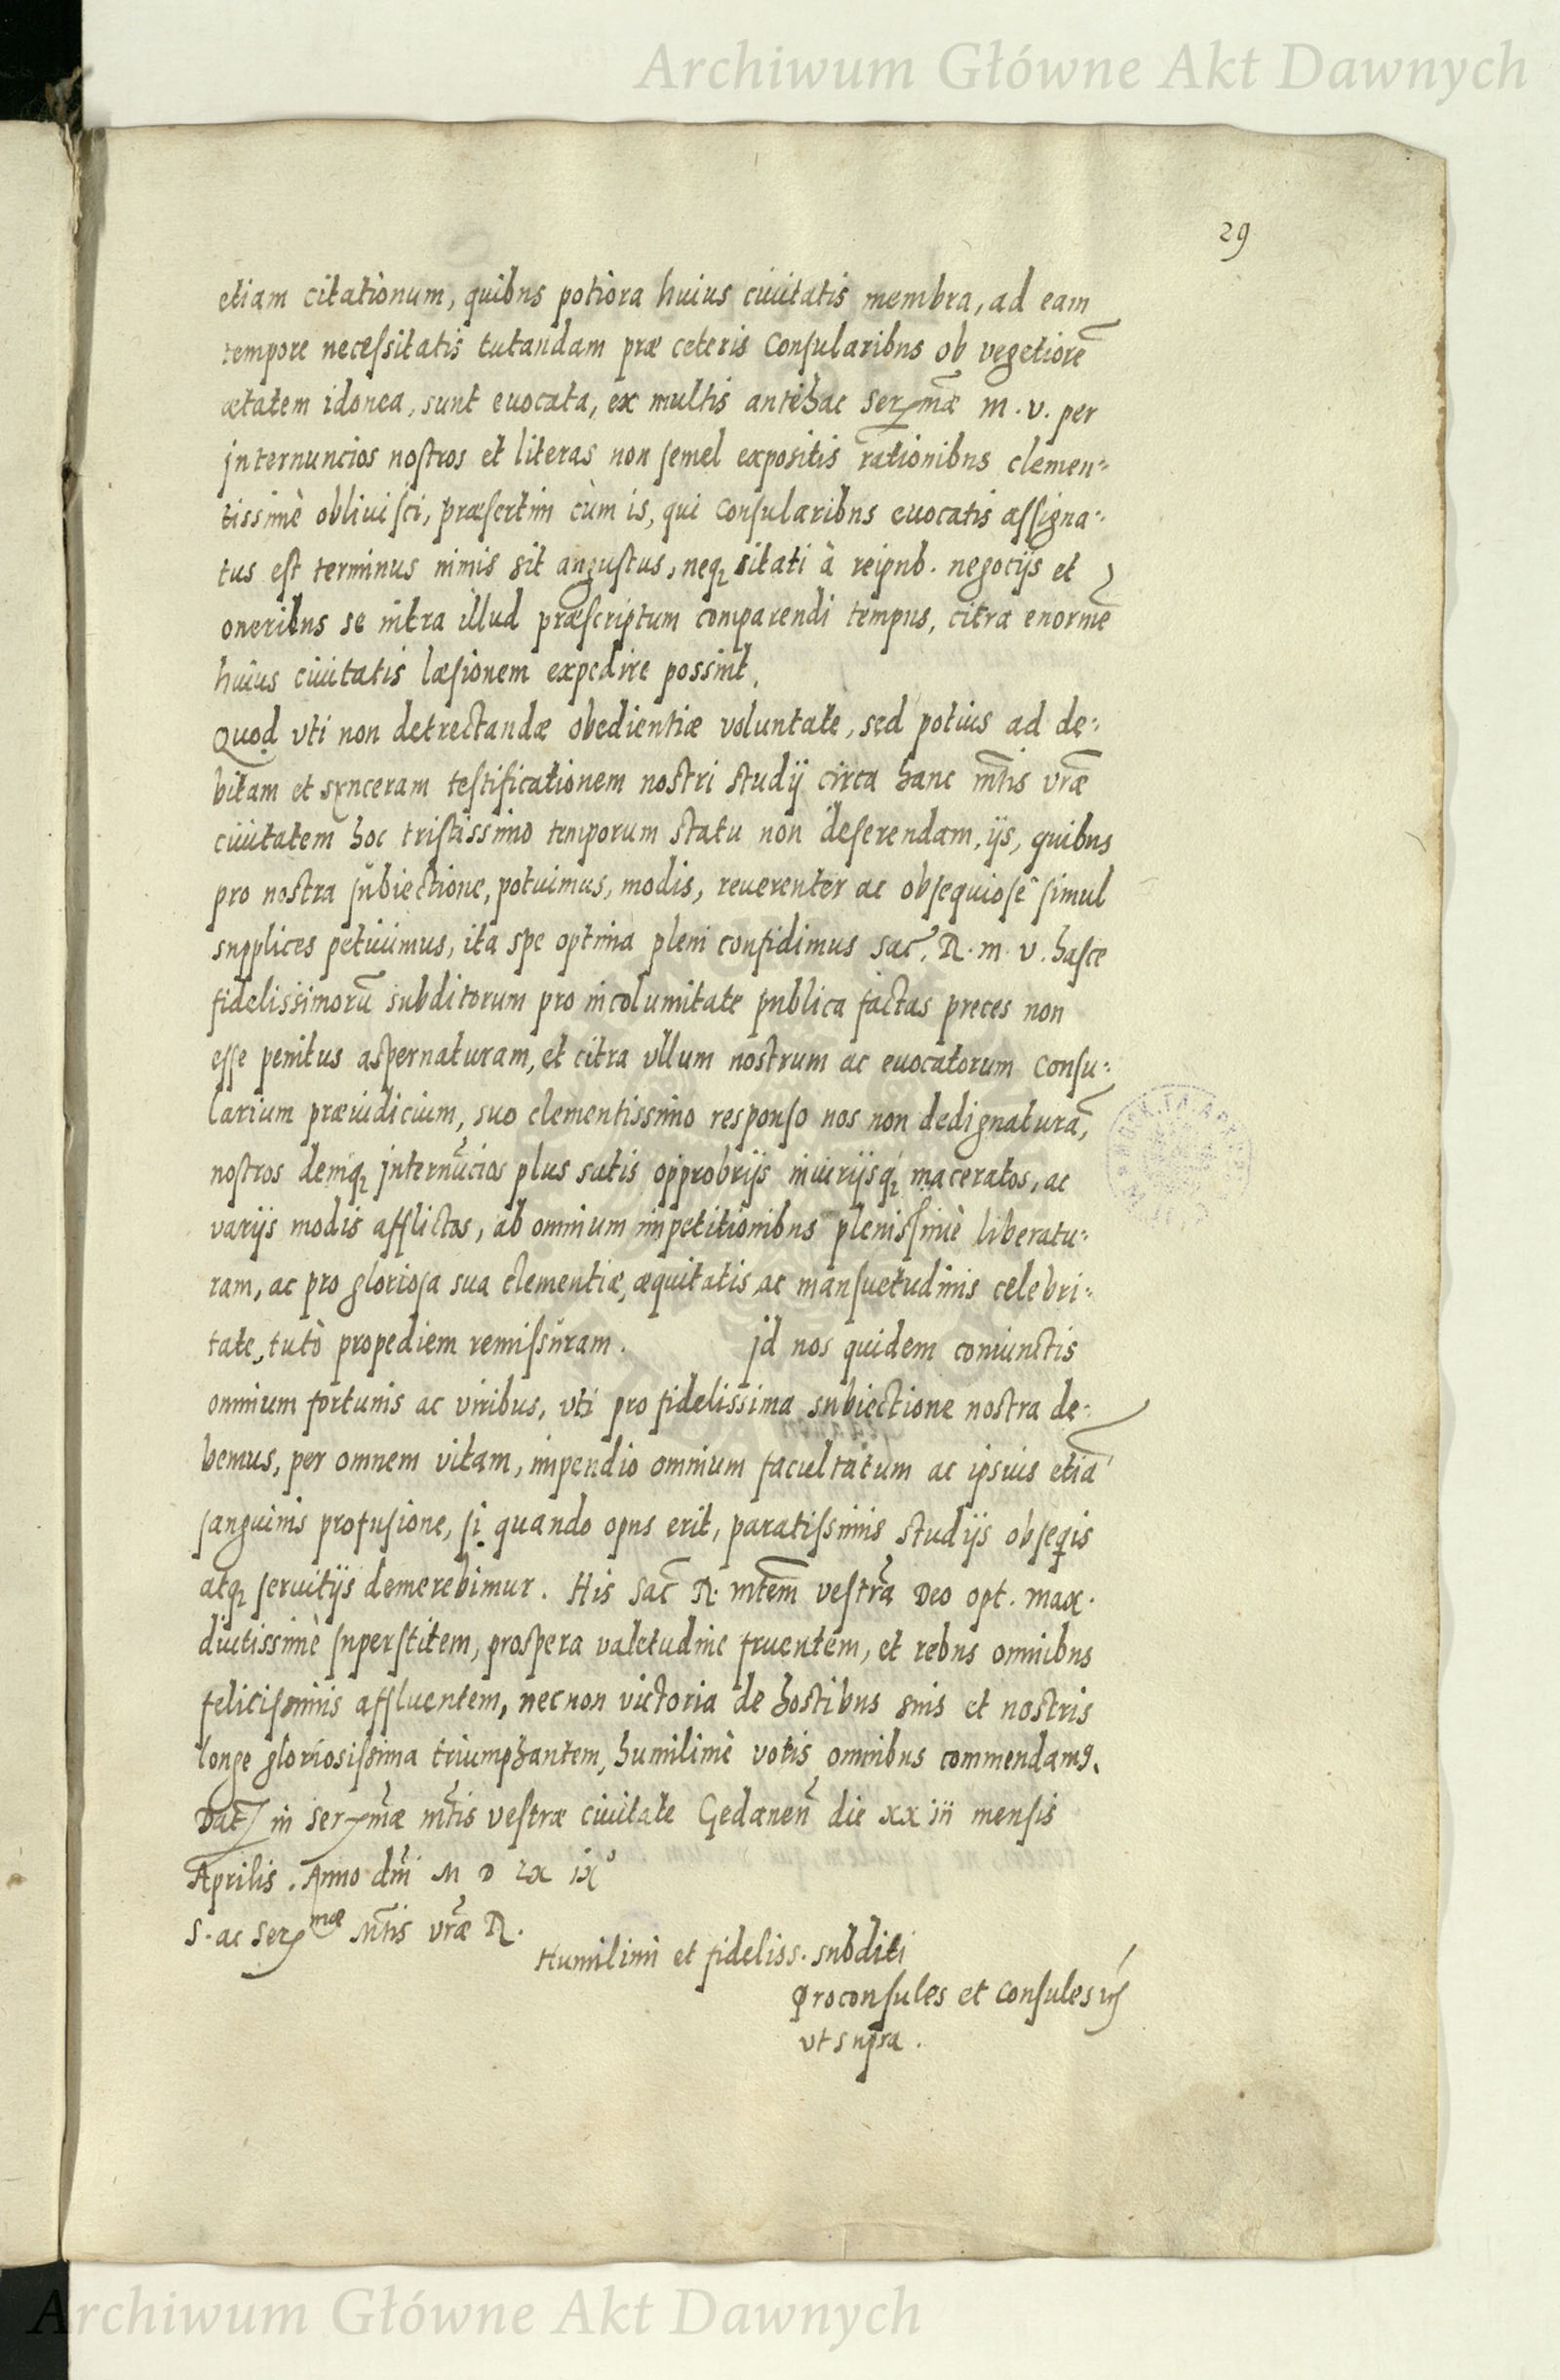 Archiwum Główne Akt Dawnych
29
etiam citationum, quibus potiora huius ciuitatis membra, ad eam
tempore necessitatis tutandam præ ceteris Consularibus ob vegetiorē
ætatem idonea, sunt euocata, ex multis antehac Serᵐæ m. v. per
internuncios nostros et literas non semel expositis rationibus clemen=
tissimè obliuisci, præsertim cùm is, qui consularibus euocatis assigna=
tus est terminus nimis sit angustus, neqꝫ sitati à reipub. negocijs et
oneribus se intra illud præscriptum comparendi tempus, citra enormē
huius ciuitatis læsionem expedire possint.
Quod vti non detrectandæ obedientiæ voluntate, sed potius ad de=
bitam et synceram testificationem nostri studij circa hanc mt̄is vrǣ
ciuitatem hoc tristissimo temporum statu non deserendam, ijs, quibus
pro nostra subiectione, potuimus, modis, reuerenter ac obsequiosè simul
supplices petiuimus, ita spe optima pleni confidimus Sac. R. m. v. hasce
fidelissimorū subditorum pro incolumitate publica factas preces non
esse penitus aspernaturam, et citra vllum nostrum ac euocatorum Consu=
larium præiudicium, suo clementissimo responso nos non dedignaturā,
nostros deniqꝫ internūcios plus satis opprobrijs iniurijsqꝫ maceratos, ac
varijs modis afflictos, ab omnium impetitionibus plenissimè liberatu=
ram, ac pro gloriosa sua clementiæ, æquitatis ac mansuetudinis celebri=
tate, tutò propediem remissuram. Id nos quidem coniunctis
omnium fortunis ac viribus, vti pro fidelissima subiectione nostra de=
bemus, per omnem vitam, impendio omnium facultatum ac ipsius etiā
sanguinis profusione, si quando opus erit, paratissimis studijs obseq̨is
atqꝫ seruitijs demerebimur. His Sac̄ R. mtēm vestrā Deo opt. max.
diutissimè superstitem, prospera valetudine fruentem, et rebus omnibus
felicissimis affluentem, necnon victoria de hostibus suis et nostris
longe gloriosissima triumphantem, humilimè votis omnibus commendamꝰ.
Datꝫ in Serᵐæ mt̄is vestræ ciuitate Gedanen̄ die xxiii mensis
Aprilis. Anno dn̄i M D LX ix°
S. ac Serᵐᵃᵉ Mt̄is vrǣ R.
Humilimi et fideliss. subditi
Proconsules et Consules
vt supra.
Archiwum Główne Akt Dawnych